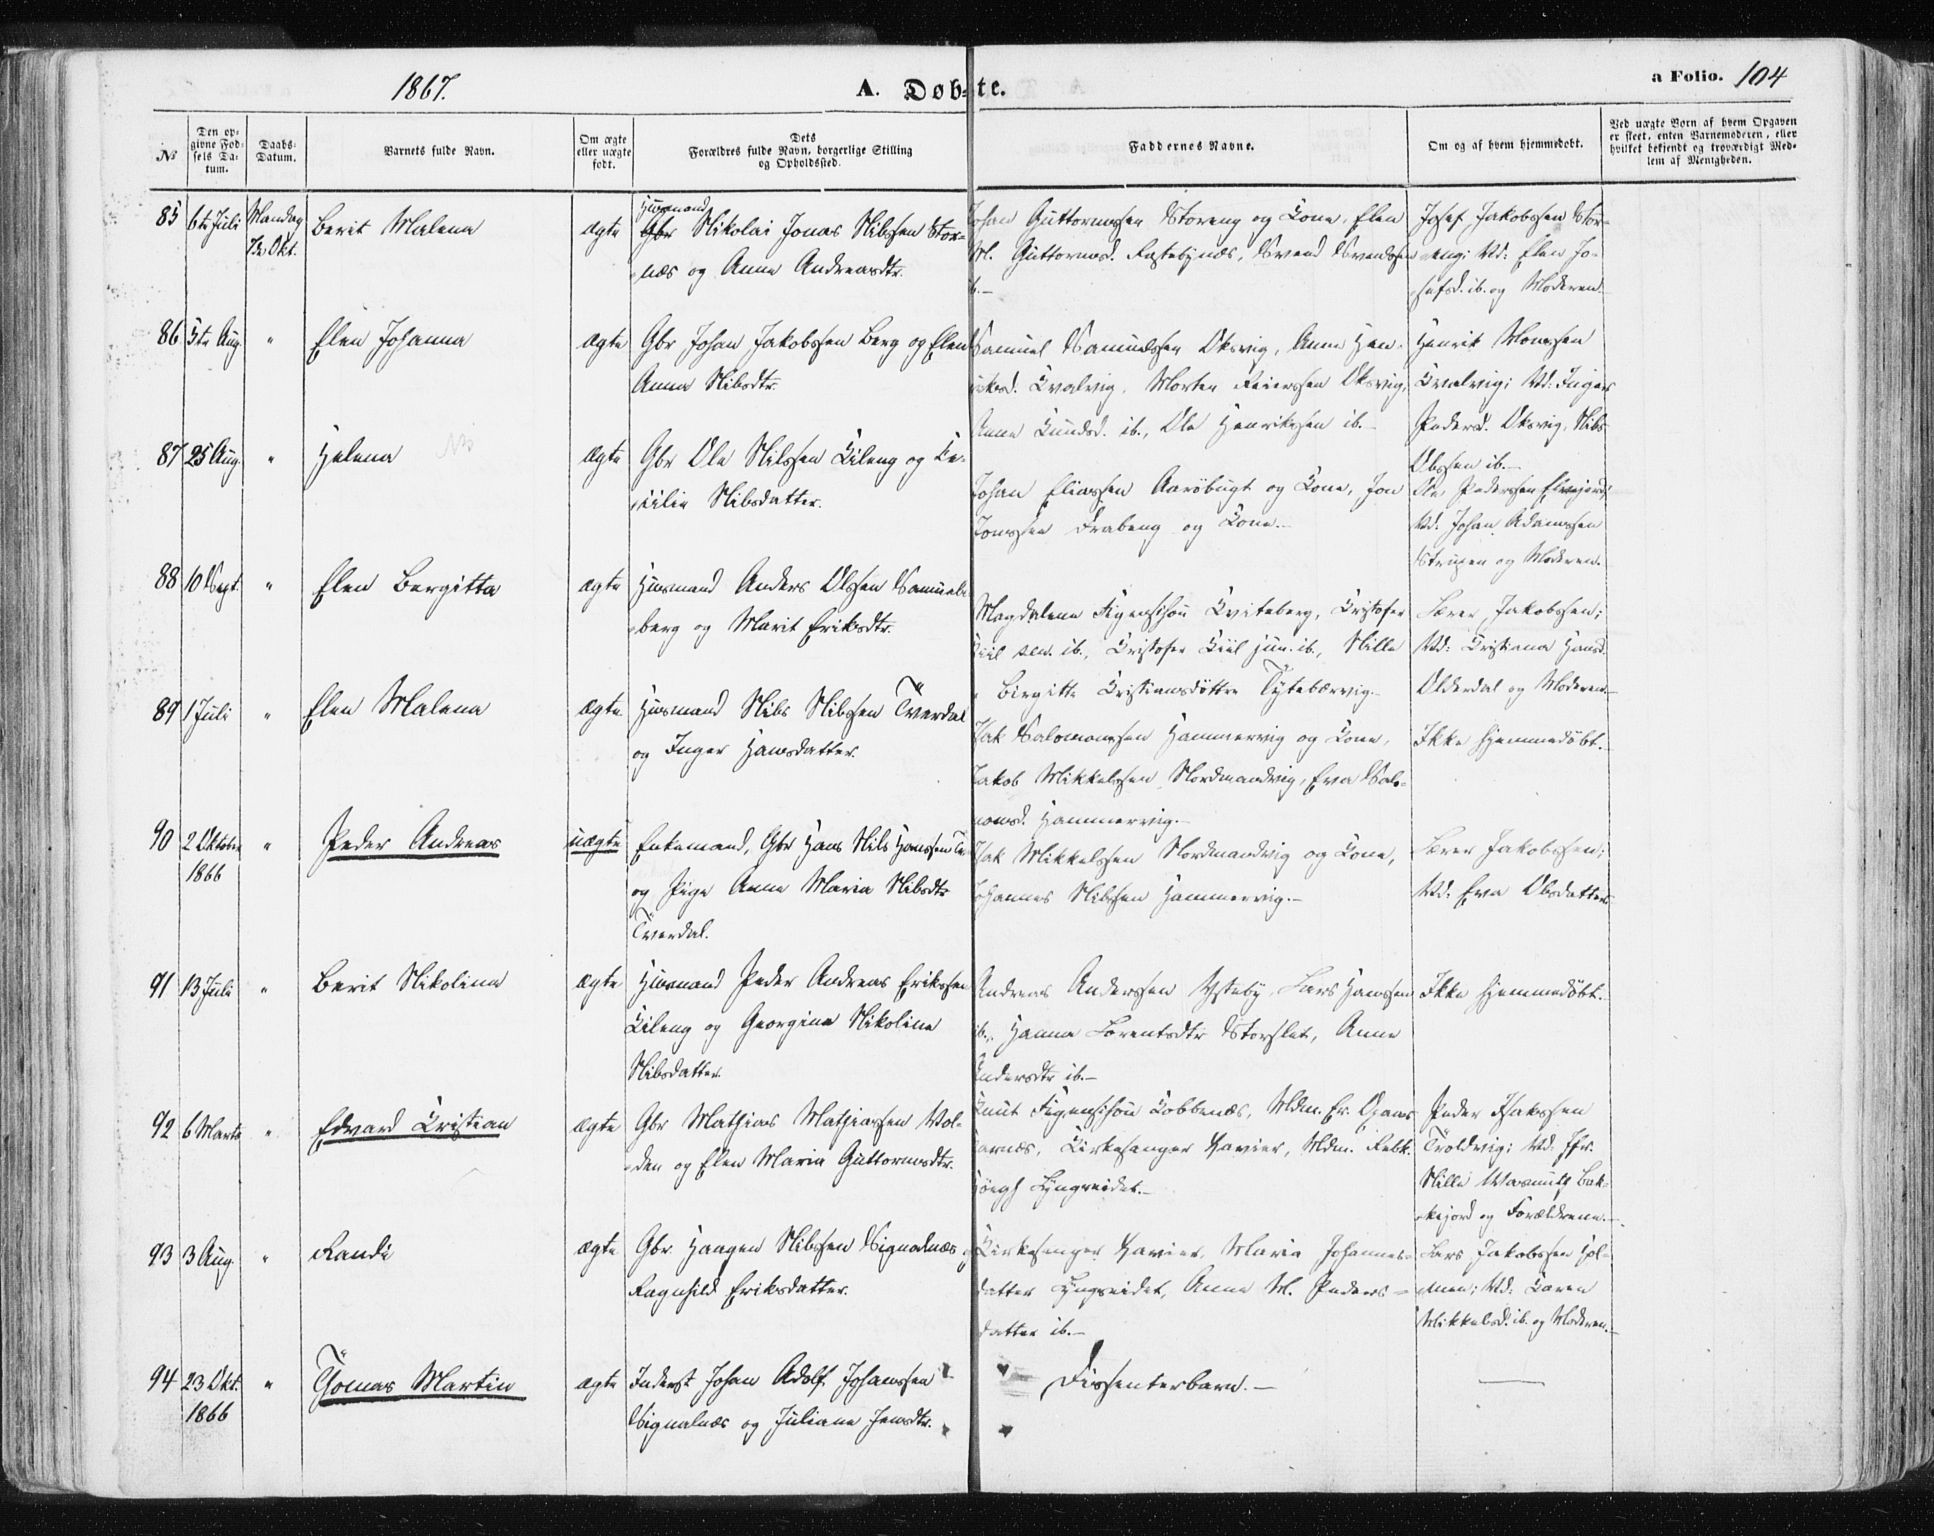 1867.
A. Døbte.
a Folio. 104
No
Den opgivne Fødsels Datum.
Daabs-Datum.
Barnets fulde Navn.
Om ægte eller uægte født.
Dets Forældres fulde Navn, borgerlige Stilling og Opholdssted.
Faddernes Navne.
Om og af hvem hjemmedøbt.
Ved uægte Børn af hvem Opgaven er skeet, enten Barnemoderen, eller hvilket bekjendt og troværdigt Medlem af Menigheden.
85 6te Juli Mandag 7de Okt. Berit Malena ægte Husmand Gbr Nikolai Jonas Nilssen Stor-
næs og Anna Andreasdtr.
Johan Guttormssen Storeng og Kone, Elen
M. Guttormsd. Rastebynæs, Svend Svendssen
ib.-
Josef Jakobssen Stor-
eng; Vd: Elen Jo-
sefsd. ib. og Moderen.-
86 5te Aug. " Elen Johanna ægte Gbr Johan Jakobssen Berg og Elen
Anna Nilsdtr.
Samuel Samuelssen Oksvig, Anna Hen-
riksd. Kvalvig, Morten Reierssen Oksvig,
Anne Knudsd. ib., Ole Henrikssen ib.-
Henrik Monssen
Kvalvig; Vd: Inger
Pedersd. Oksvig, Nils
Olssen ib.-
87 25 Aug. " Helena ægte Gbr Ole Nilssen Kileng og Ce-
cilie Nilsdatter.
Johan Eliassen Aarøbugt og Kone, Jon
Tomssen Drabeng og Kone.-
Ole Pederssen Elvejord;
Vd. Johan Adamssen
Strupen og Moderen.-
88 10 Sept. " Elen Bergitta ægte Husmand Anders Olssen Samuels-
berg og Marit Eriksdtr.
Magdalena Figenschou Kviteberg, Kristofer
Kiil sen. ib., Kristofer Kiil jun. ib., Nille
Birgitte Kristiansdøttre Tytebærvig-
Lærer Jakobssen;
Vd: Kristiana Hansd.
Olderdal og Moderen.-
89 1 Juli " Elen Malena ægte Husmand Nils Nilssen Tverdal
og Inger Hansdatter.
Isak Salomonssen Hammervig og Kone,
Jakob Mikkelssen Nordmandvig, Eva Salo-
monsd. Hammervig.-
Ikke hjemmedøbt.-
90 2 Oktober 1866 " Peder Andreas uægte Enkemand, Gbr Hans Nils Hanssen
og Pige Anne Maria Nilsdtr
Tverdal.
Isak Mikkelssen Nordmandvig og Kone,
Johannes Nilssen Hammervig.-
Lærer Jakobssen;
Vd: Eva Olsdatter
91 13 Juli " Berit Nikolina ægte Husmand Peder Andreas Erikssen
Kileng og Georgine Nikoline
Nilsdatter.
Andreas Anderssen Ysteby, Lars Hanssen
ib., Hanna Lorentsdtr Storslet, Anne
Andersdtr ib.-
Ikke hjemmedøbt.-
92 6 Marts " Edvard Kristian ægte Gbr Mathias Mathiassen Vol-
den og Elen Maria Guttormsdtr.
Knut Figenschou Kobbenæs, Mdm. Fr.
Kirkesanger Xavier, Mdm. Rebk.
Høegh Lyngseidet.-
Peder Isakssen
Troldvig; Vd. Jfr.
Nille Wasmuth Bak-
kejord og Forældrene.-
93 3 Aug. " Randi ægte Gbr. Haagen Nilssen Signalnæs og
Ragnhild Eriksdatter.
Kirkesanger Xavier, Maria Johannes-
datter Lyngseidet, Anne M. Peders-
datter ib.-
Lars Jakobssen Hol-
men; Vd: Karen
Mikkelsd. ib. og Moderen.-
94 23 Okt. 1866 " Thomas Martin ægte Inderst Johan Adolf Johanssen
Signalnæs og Juliane Jensdtr.
Dissenterbarn.-